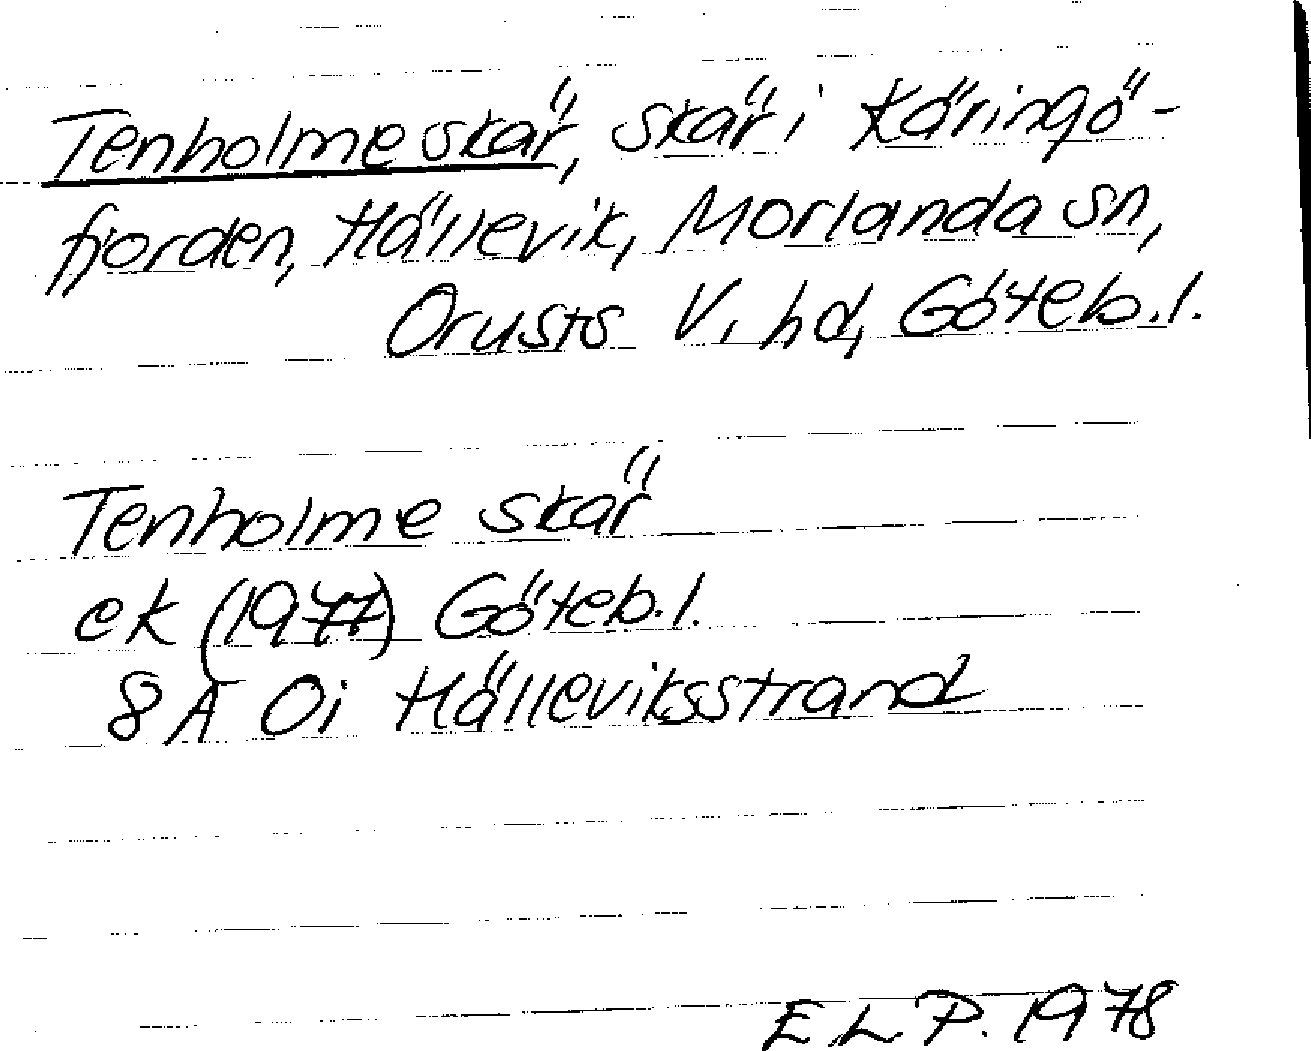 Tenholmeskär, skär i Käringö-
fjorden, Hällevik, Morlanda sn,
Orusts V. hd, Göteb.l.
Tenholme skär
ek (1977) Göteb.l.
8A 0i Hälleviksstrand
E.L.P. 1978